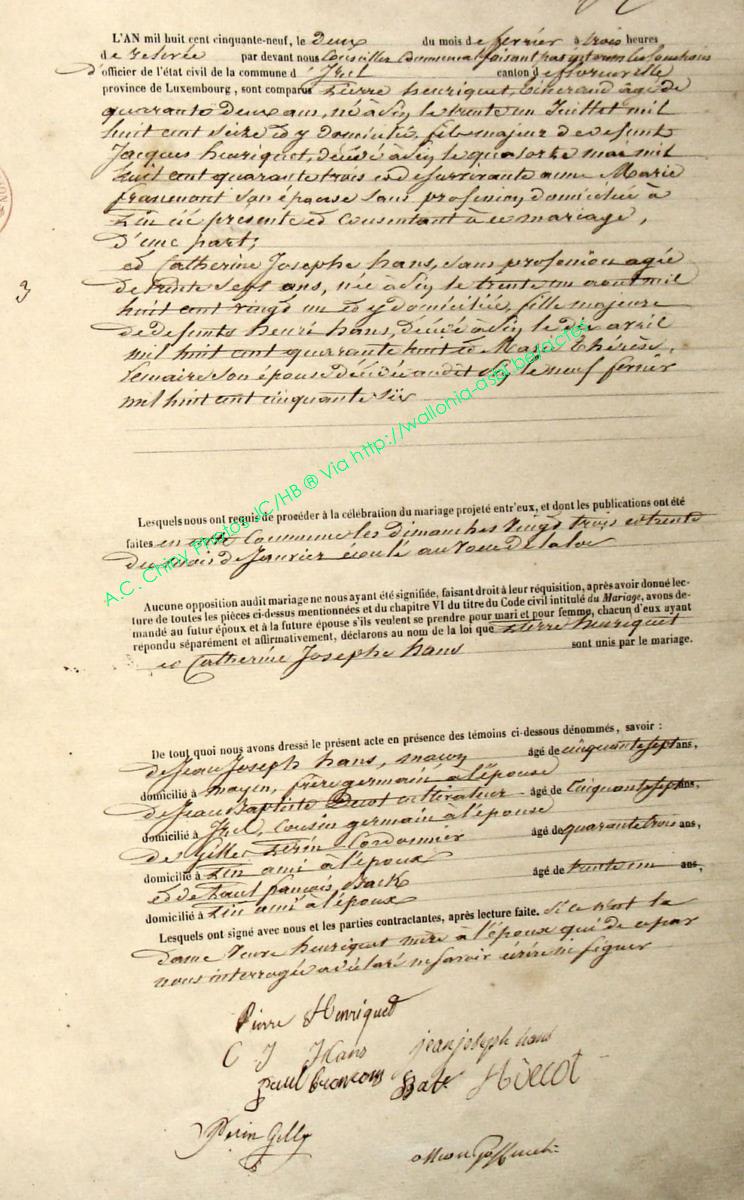 L'AN mil huit cent cinquante-neuf, le Deux du mois de fevrier à trois heures
de relevée par devant nous Conseiller Communal faisant
d'officier de l'état civil de la commune d'Izel canton d
province de Luxembourg, sont comparus Pierre henriquet, âgé de
quarante Deux ans, né à le trente un Juillet mil
huit cent seize et y Domicilié, fils majeur de defunt
Jacques henriquet, décédé à le quatorze mai mil
huit cent quarante trois et de survivante anne Marie
son épouse sans profession, domiciliée à
ici présente et Consentant à ce mariage,
D'une part;
et Catherine Josephe hans, sans profession agée
de trente sept ans, née à le trente un aout mil
huit cent vingt un et y domiciliée, fille majeure
de defunts henri hans, décédé à le dix avril
mil huit cent quarante huit et Marie Thérèse
Lemaire son épouse décédée audit le neuf fevrier
mil huit cent cinquante six
3
Lesquels nous ont requis de procéder à la célébration du mariage projeté entr'eux, et dont les publications ont été
faites en cette Commune les dimanches vingt trois et trente
du mois de Janvier écoulé au voeu de la loi
Aucune opposition audit mariage ne nous ayant été signifiée, faisant droit à leur réquisition, après avoir donné lec-
ture de toutes les pièces ci-dessus mentionnées et du chapitre VI du titre du Code civil intitulé du Mariage, avons de-
mandé au futur époux et à la future épouse s'ils veulent se prendre pour mari et pour femme, chacun d'eux ayant
répondu séparément et affirmativement, déclarons au nom de la loi que Pierre henriquet
et Catherine Josephe hans sont unis par le mariage.
De tout quoi nous avons dressé le présent acte en présence des témoins ci-dessous dénommés, savoir :
de Jean Joseph hans, maçon âgé de cinquante sept ans,
domicilié à moyen, frère germain à l'épouse
de Jean Baptiste cultivateur âgé de Cinquante sept ans,
domicilié à Izel, Cousin germain à l'épouse
de Gilles Perin Cordonnier âgé de quarante trois ans,
domicilié à ami à l'époux
et de Paul françois âgé de trente un ans,
domicilié à ami à l'époux
Lesquels ont signé avec nous et les parties contractantes, après lecture faite. si ce n'est la
Dame Veuve henriquet mère à l'époux qui de ce par
nous interrogée a déclaré ne savoir écrire ni signer
Pierre Henriquet
C J Hans jean joseph hans
paul francois
Perin Gilly
A.C. Chiny Photos JC/HB ® Via http://wallonia-asbl.be/actes